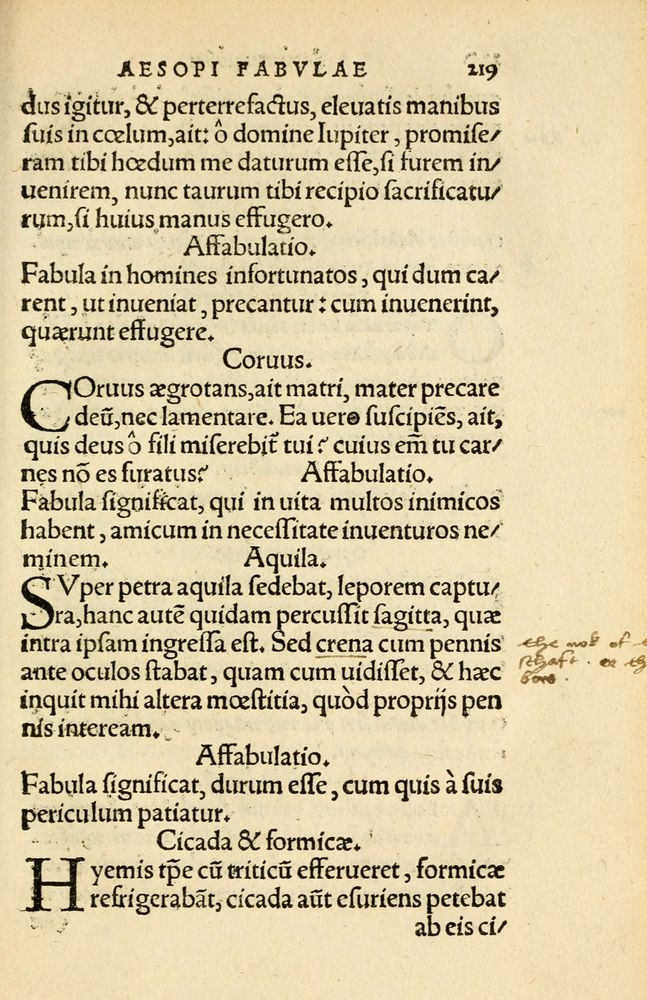 AESOPI FABVLAE 219
dus igitur, & perterrefactus, eleuatis manibus
suis in cœlum, ait: ô domine Iupiter, promise/
ram tibi hœdum me daturum esse, si furem in/
uenirem, nunc taurum tibi recipio sacrificatu/
rum, si huius manus effugero.
Affabulatio.
Fabula in homines infortunatos, qui dum ca/
rent, ut inueniat, precantur: cum inuenerint,
quærunt effugere.
Coruus.
COruus ægrotans, ait matri, mater precare
deũ, nec lamentare. Ea uero suscipiẽs, ait,
quis deus ô fili miserebit̃ tui? cuius em̃ tu car/
nes nõ es furatus? Affabulatio.
Fabula significat, qui in uita multos inimicos
habent, amicum in necessitate inuenturos ne/
minem. Aquila.
SVper petra aquila sedebat, leporem captu/
ra, hanc autẽ quidam percussit sagitta, quæ
intra ipsam ingressa est. Sed crena cum pennis
ante oculos stabat, quam cum uidisset, & hæc
inquit mihi altera mœstitia, quòd proprijs pen
nis inteream.
Affabulatio.
Fabula significat, durum esse, cum quis à suis
periculum patiatur.
Cicada & formicæ.
Hyemis tp̃e cũ triticũ efferueret, formicæ
refrigerabãt, cicada aũt esuriens petebat
ab eis ci/
the nok of
shaft. or th
bow.